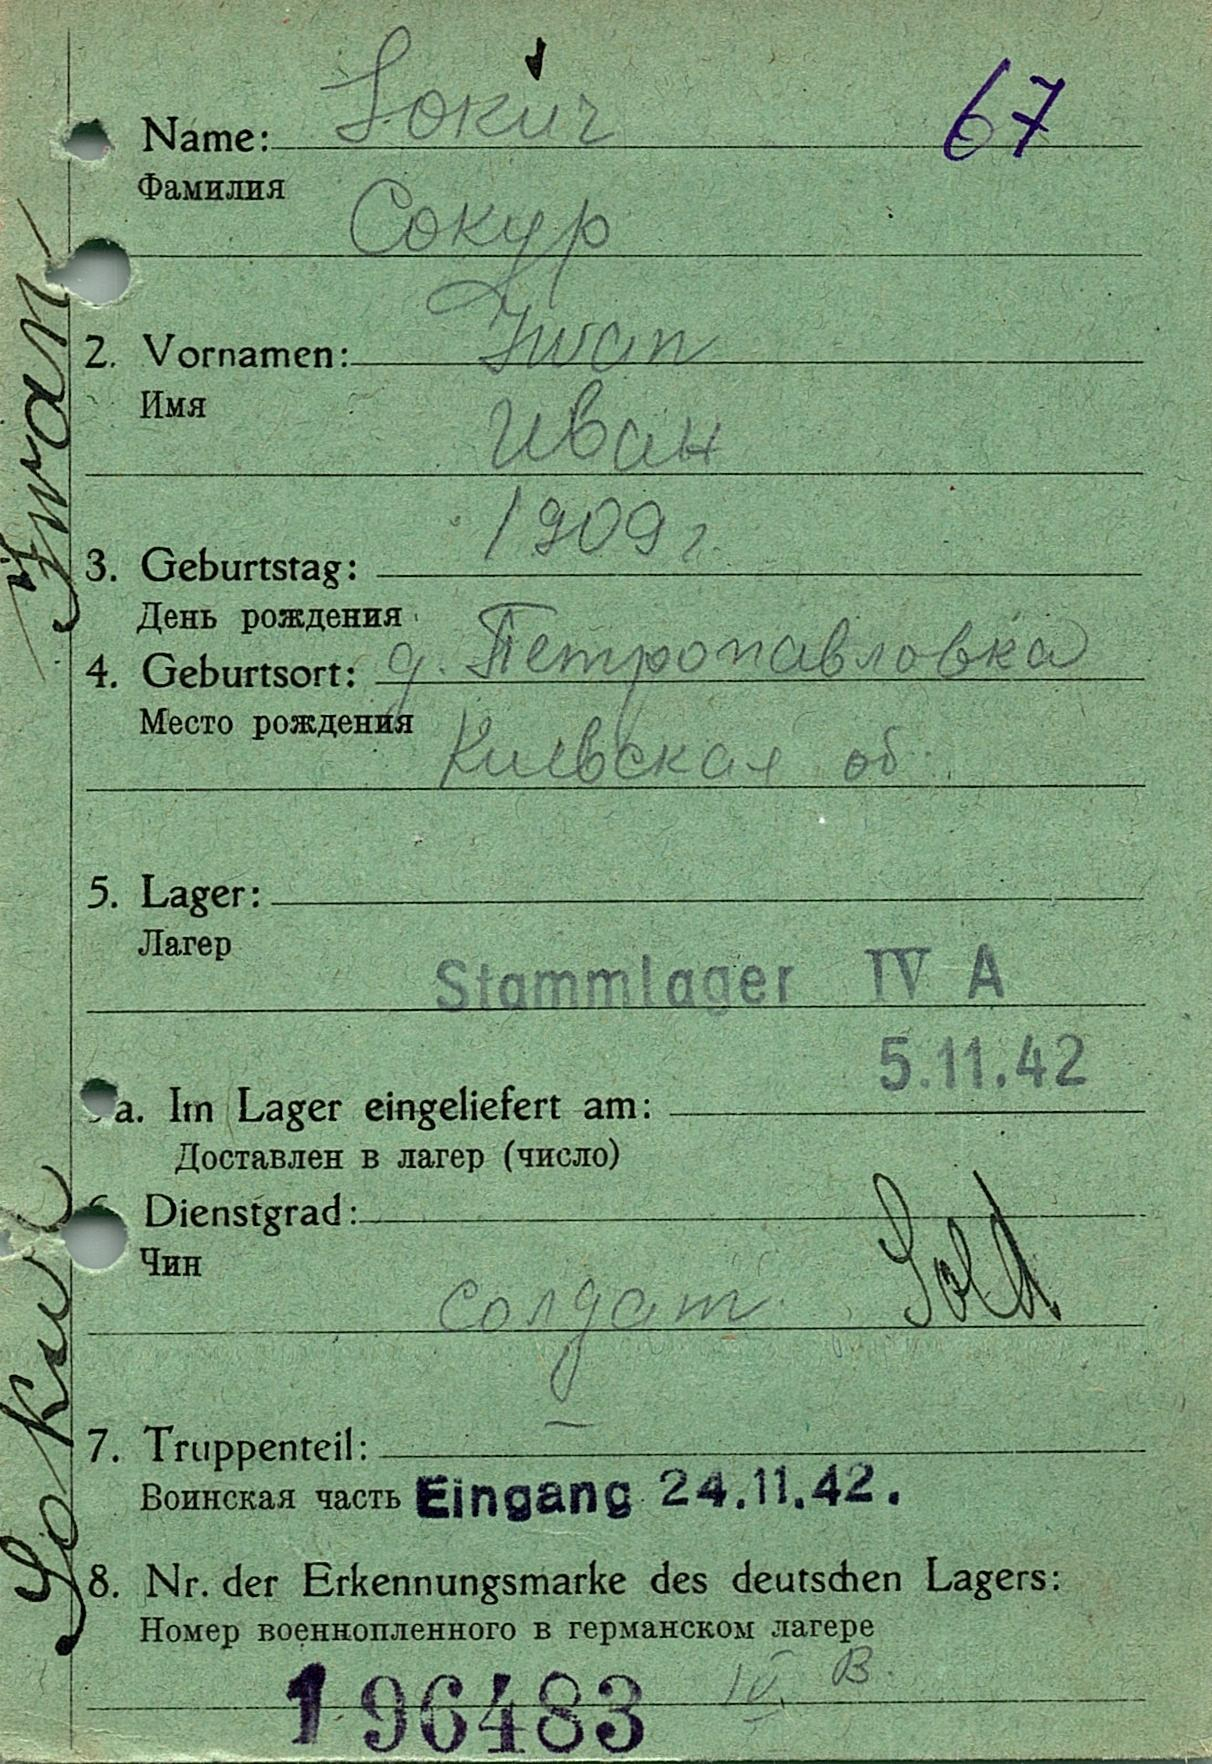 67
Name: Sokur
Фамилия
Сокур
2. Vornamen: Iwan
Имя
Иван
1909 г.
3. Geburtstag:
День рождения
4. Geburtsort: д. Петропавловка
Место рождения
Киевская об.
5. Lager:
Лагер
Stammlager IV A
5.11.42
a. Im Lager eingeliefert am:
Доставлен в лагер (число)
6 Dienstgrad:
Чин
солдат Sold
7. Truppenteil: —
Воинская часть Eingang 24.11.42.
8. Nr. der Erkennungsmarke des deutschen Lagers:
Номер военнопленного в германском лагере
196483 IV B.
Iwan